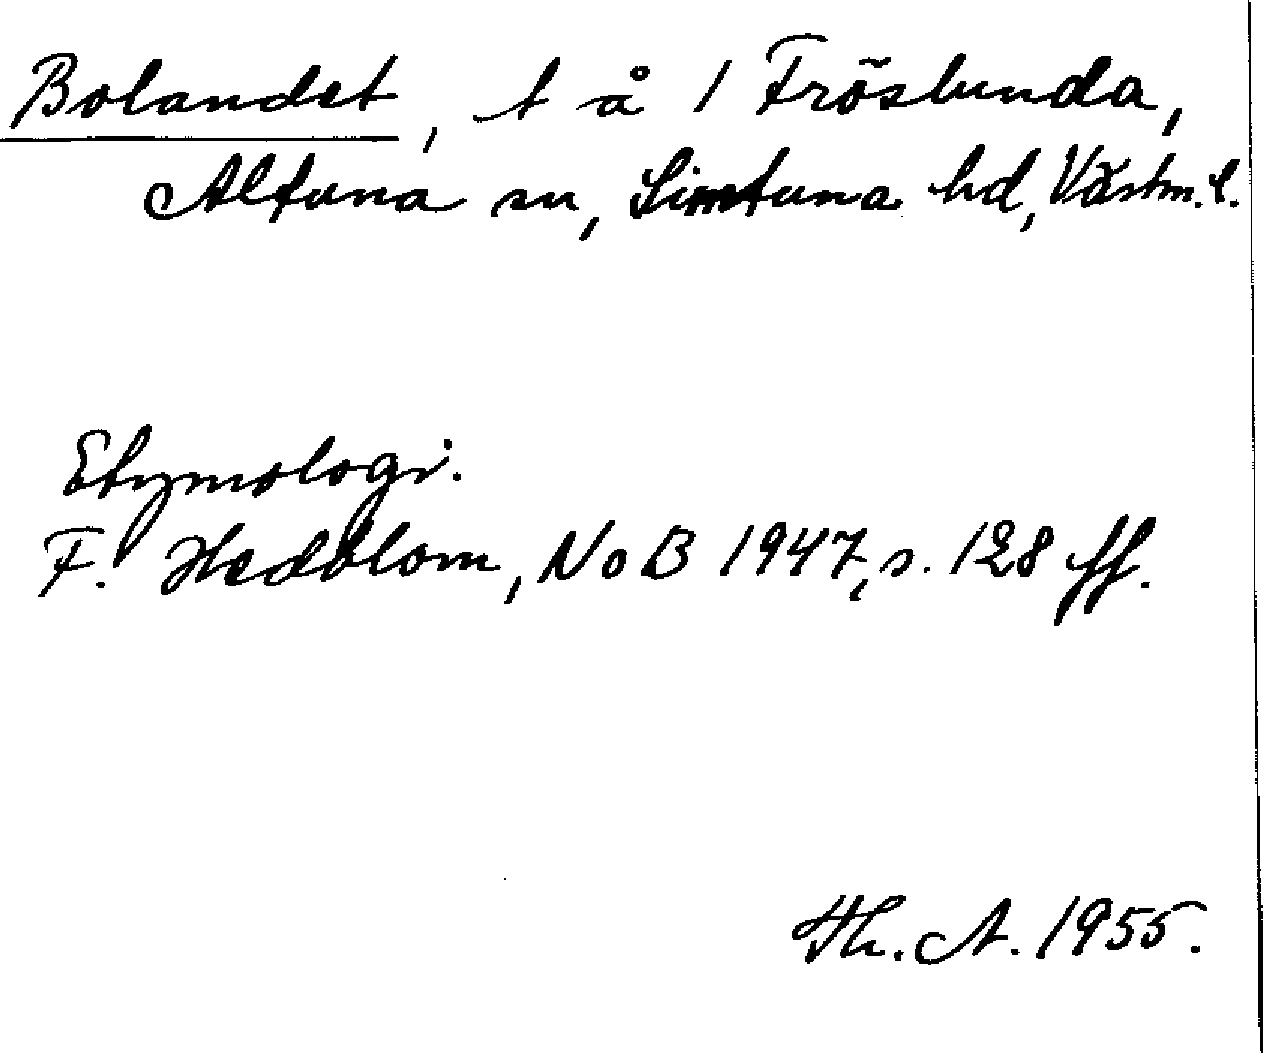 Bolandet, t å 1 Fröslunda,
Altuna sn, Simtuna hd, Västm. l.
Etymologi.
F. Hedblom, NoB 1947, s. 128 ff.
Th. A. 1955.